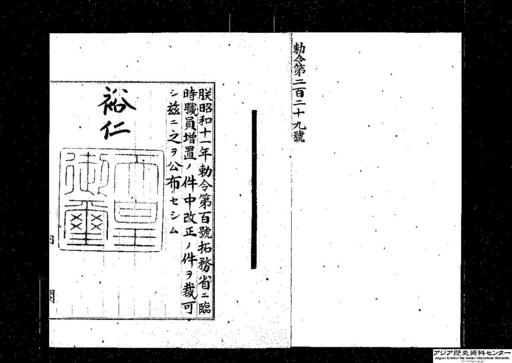 勅令第二百二十九號
朕昭和十一年勅令第百號拓務省ニ臨
時職員增置ノ件中改正ノ件ヲ裁可
シ茲ニ之ヲ公布セシム
裕仁
天皇
御璽
内
閣
アジア歴史資料センター
Japan Center for Asian Historical Records